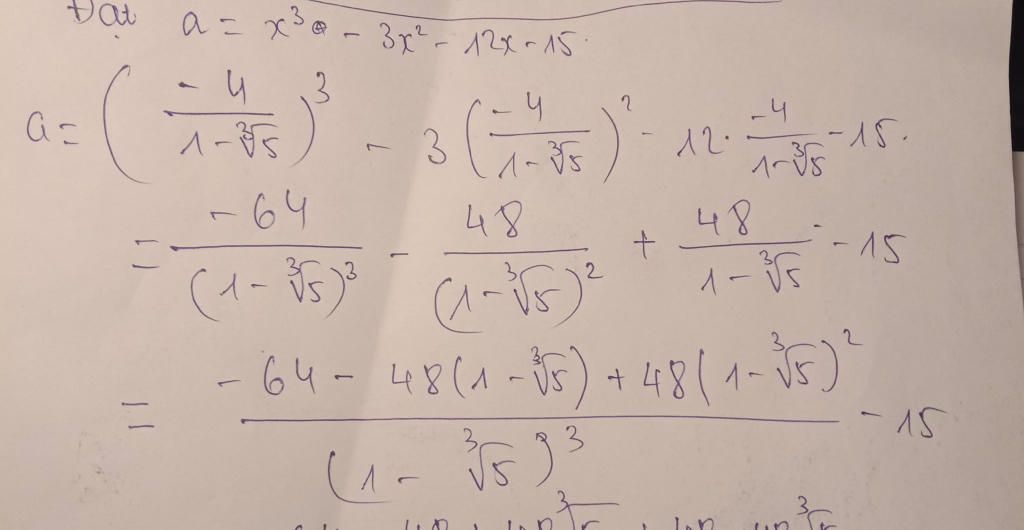 Đặt a = x³ - 3x² - 12x - 15.
a = (-4/(1-∛5))³ - 3(-4/(1-∛5))² - 12·(-4/(1-∛5)) - 15.
= -64/(1-∛5)³ - 48/(1-∛5)² + 48/(1-∛5) - 15
= (-64 - 48(1-∛5) + 48(1-∛5)²)/(1-∛5)³ - 15